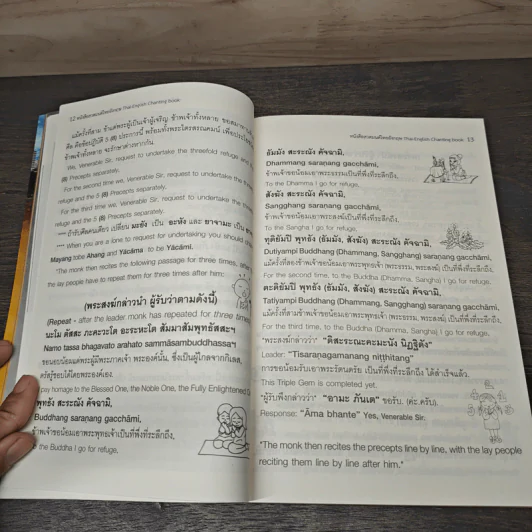 12 หนังสือสวดมนต์ไทยอังกฤษ Thai-English Chanting Book
แม้ครั้งที่สาม ข้าแต่พระผู้เป็นเจ้าผู้เจริญ ข้าพเจ้าทั้งหลาย ขอสมาทาน
คือ ข้อปฏิบัติ 5 (8) ประการนี้ พร้อมทั้งพระไตรสรณคมน์ เพื่อประโยชน์
ข้าพเจ้าทั้งหลาย จะรักษาต่างหากกัน
We, Venerable Sir, request to undertake the threefold refuge and
(8) Precepts separately.
For the second time we, Venerable Sir, request to undertake the three
refuge and the 5 (8) Precepts separately.
For the third time we, Venerable Sir, request to undertake the
refuge and the 5 (8) Precepts separately.
**** ถ้ารับศีลคนเดียว เปลี่ยน มะยัง เป็น อะหัง และ ยาจามะ เป็น
**** When you are a lone to request for undertaking you should
Mayang tobe Ahang and Yācāma to be Yācāmi.
"The monk then recites the following passage for three times, after
the lay people have to repeat them for three times after him:
(พระสงฆ์กล่าวนำ ผู้รับว่าตามดังนี้)
(Repeat - after the leader monk has repeated for three times
นะโม ตัสสะ ภะคะวะโต อะระหะโต สัมมาสัมพุทธัสสะฯ
Namo tassa bhagavato arahato sammāsambuddhassaฯ
ขอนอบน้อมแด่พระผู้มีพระภาคเจ้า พระองค์นั้น, ซึ่งเป็นผู้ไกลจากกิเลส,
ตรัสรู้ชอบได้โดยพระองค์เอง.
pay homage to the Blessed One, the Noble One, the Fully Enlightened
พุทธัง สะระณัง คัจฉามิ,
Buddhang saraṇang gacchāmi,
ข้าพเจ้าขอน้อมเอาพระพุทธเจ้าเป็นที่พึ่งที่ระลึกถึง,
to the Buddha I go for refuge.
หนังสือสวดมนต์ไทยอังกฤษ Thai-English Chanting Book 13
ธัมมัง สะระณัง คัจฉามิ,
Dhammang saraṇang gacchāmi,
ข้าพเจ้าขอน้อมเอาพระธรรมเป็นที่พึ่งที่ระลึกถึง,
To the Dhamma I go for refuge.
สังฆัง สะระณัง คัจฉามิ,
Sangghang saraṇang gacchāmi,
ข้าพเจ้าขอน้อมเอาพระสงฆ์เป็นที่พึ่งที่ระลึกถึง,
To the Sangha I go for refuge.
ทุติยัมปิ พุทธัง (ธัมมัง, สังฆัง) สะระณัง คัจฉามิ,
Dutiyampi Buddhang (Dhammang, Sangghang) saraṇang gacchāmi,
แม้ครั้งที่สองข้าพเจ้าขอน้อมเอาพระพุทธเจ้า (พระธรรม, พระสงฆ์) เป็นที่พึ่งที่ระลึกถึง,
For the second time, to the Buddha (Dhamma, Sangha) I go for refuge.
ตะติยัมปิ พุทธัง (ธัมมัง, สังฆัง) สะระณัง คัจฉามิ,
Tatiyampi Buddhang (Dhammang, Sangghang) saraṇang gacchāmi,
แม้ที่สามข้าพเจ้าขอน้อมเอาพระพุทธเจ้า (พระธรรม, พระสงฆ์) เป็นที่พึ่งที่ระลึกถึง,
For the third time, to the Buddha (Dhamma, Sangha) I go for refuge.
"พระสงฆ์กล่าวว่า" "ติสะระณะคะมะนัง นิฏฐิตัง"
Leader: "Tisaraṇagamanang niṭṭhitang"
การขอน้อมรับเอาพระรัตนตรัย เป็นที่พึ่งที่ระลึกถึง ได้สำเร็จแล้ว.
This Triple Gem is completed yet.
"ผู้รับพึงกล่าวว่า" "อามะ ภันเต" ขอรับ. (ค่ะ ครับ).
Response: "Āma bhante" Yes, Venerable Sir.
"The monk then recites the precepts line by line, with the lay people
reciting them line by line after him."